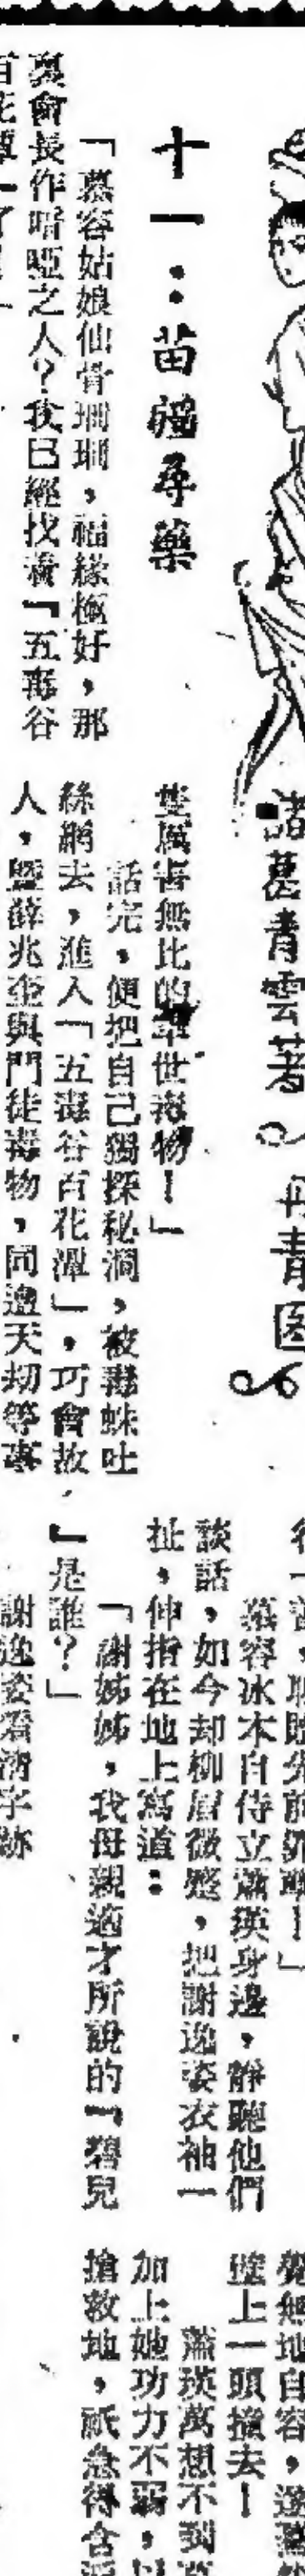 諸葛青雲著
丹青图
十一：苗疆尋藥
「慕容姑娘仙骨珊珊，福緣極好，那
裏會長作喑啞之人？我已經找着『五毒谷
百花潭』了！」
隻厲害無比的罕世毒物！」
話完，便把自己獨探秘洞，被毒蛛吐
絲網去，進入「五毒谷百花潭」，巧會故
人，暨薛兆奎與門徒毒物，同遭天刼等事
慕容冰本自侍立蕭瑛身邊，靜聽他們
談話，如今却柳眉微蹙，把謝逸姿衣袖一
扯，伸指在地上寫道：
「謝姊姊，我母親適才所說的『碧兒
』是誰？」
謝逸姿看清字跡
覺無地自容，遂
壁上一頭撞去！
蕭瑛萬想不到
加上她功力不弱，
搶救地，祇急得含